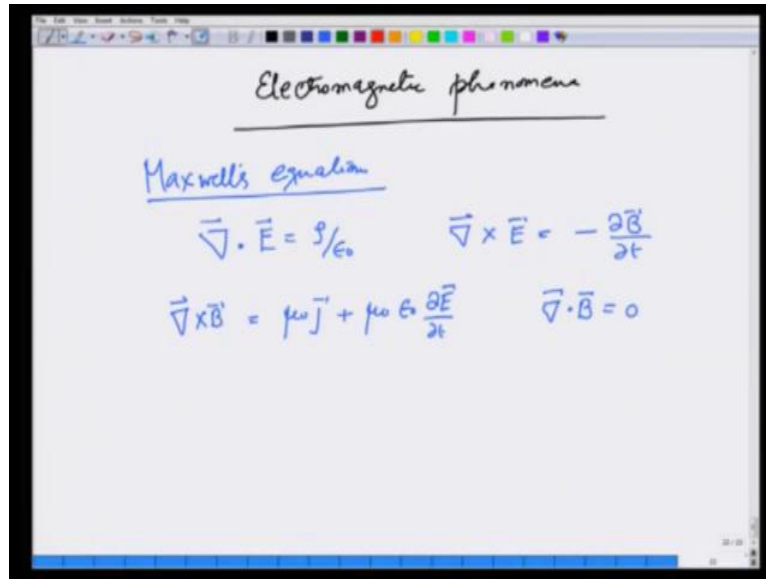 File Edit View Insert Actions Tools Help
Electromagnetic phenomena
Maxwell's equations
∇⃗ · E⃗ = ρ/ε₀    ∇⃗ × E⃗ = − ∂B⃗/∂t
∇⃗ × B⃗ = μ₀ j⃗ + μ₀ ε₀ ∂E⃗/∂t    ∇⃗ · B⃗ = 0